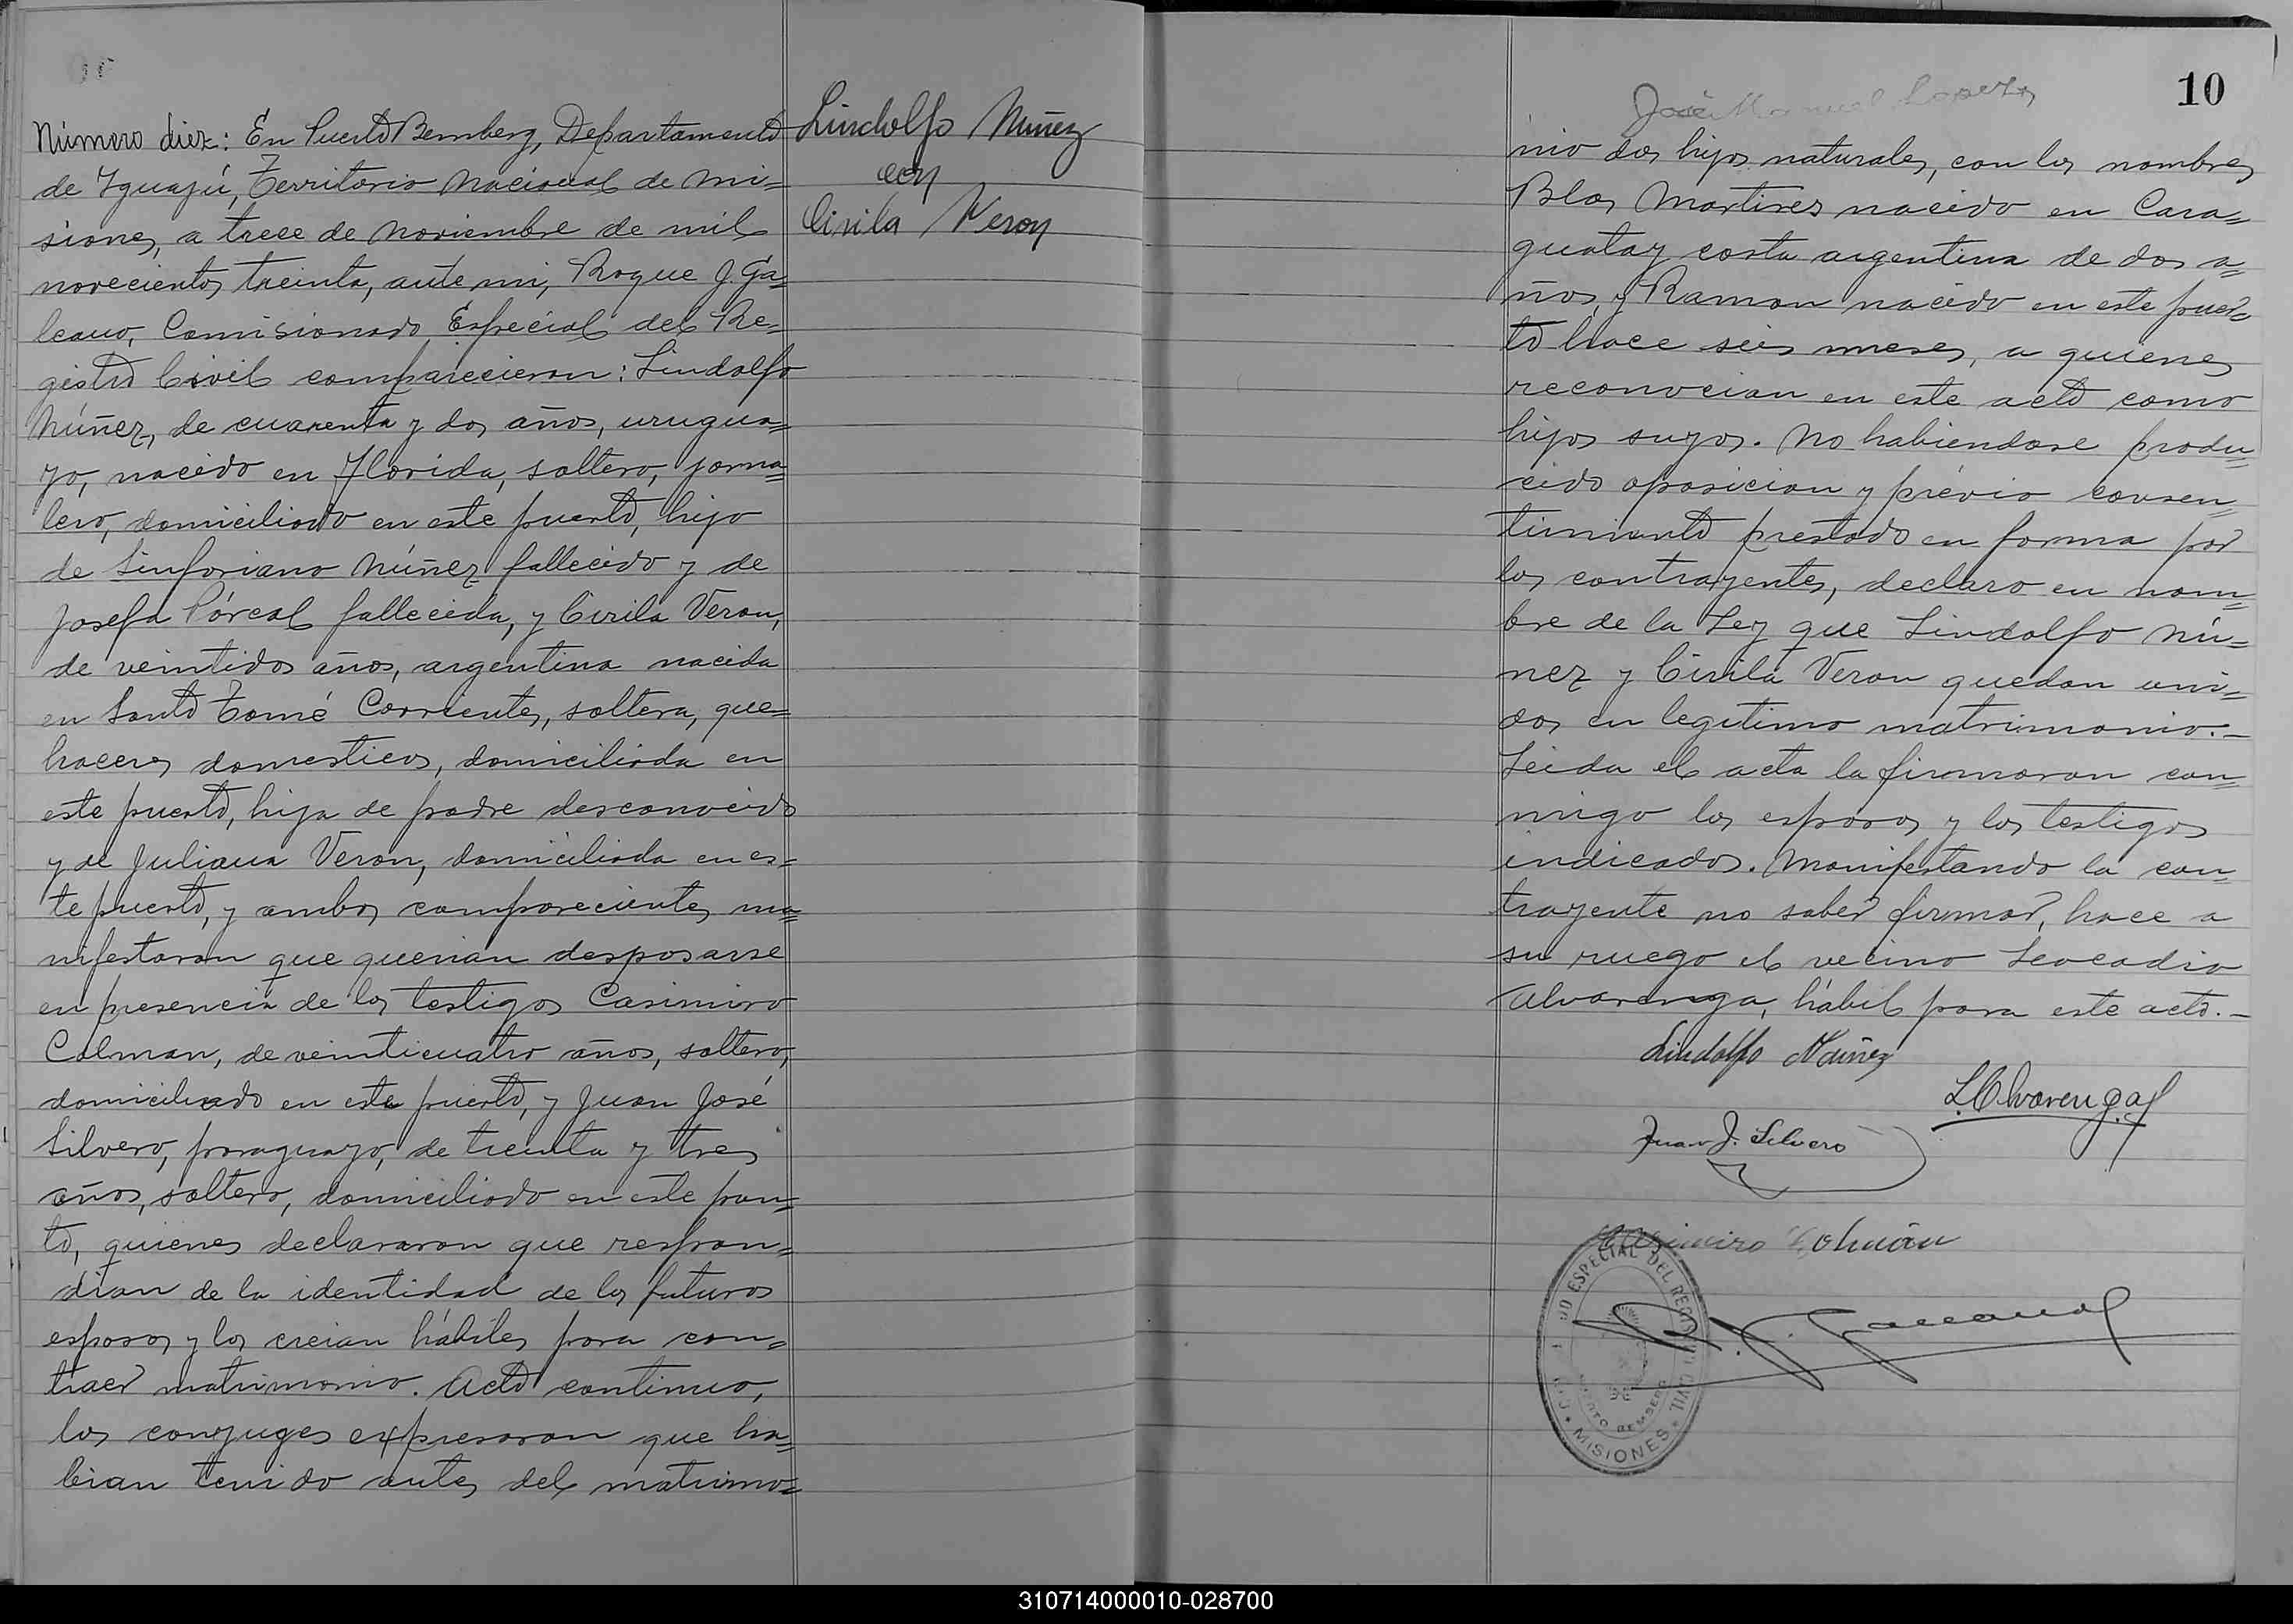 Número diez: En Puerto Bemberg, Departamento
de Iguazú, Territorio Nacional de Mi=
siones, a trece de Noviembre de mil
novecientos treinta, ante mi, Roque J. Ga=
leano, Comisionado Especial del Re=
gistro Civil comparecieron: Lindolfo
Núñez, de cuarenta y dos años, urugua=
yo, nacido en Florida, soltero, jorna=
lero, domiciliado en este puerto, hijo
de Sinforiano Núñez fallecido y de
Josefa fallecida, y Cirila Veron,
de veintidos años, argentina nacida
en Santo Tomé Corrientes, soltera, que=
haceres domesticos, domiciliada en
este puerto, hija de padre desconocido
y de Juliana Veron, domiciliada en es=
te puerto, y ambos comparecientes ma=
nifestaron que querian desposarse
en presencia de los testigos Casimiro
Colman, de veinticuatro años, soltero,
domiciliado en este puerto, y Juan José
Silvero, paraguayo, de treinta y tres
años, soltero, domiciliado en este pun=
to, quienes declararon que respon=
dian de la identidad de los futuros
esposos y los creian hábiles para con=
traer matrimonio. Acto continuo,
los conyuges expresaron que ha=
bian tenido antes del matrimo=
Lindolfo Nuñez
con
Cirila Veron
10
José Manuel Lopez
nio dos hijos naturales, con los nombres
Blas Martires nacido en Cara=
guatay costa argentina de dos a=
ños, y Ramon nacido en este puer=
to hace seis meses, a quienes
reconocian en este acto como
hijos suyos. No habiendose produ=
cido oposicion y prévio consen=
timiento prestado en forma por
los contrayentes, declaro en nom=
bre de la Ley que Lindolfo Nú=
nez y Cirila Veron quedan uni=
dos en legitimo matrimonio.-
Leida el acta la firmaron con=
migo los esposos y los testigos
indicados. Manifestando la con=
trayente no saber firmar, hace a
su ruego el vecino Leocadio
Alvarenga, hábil para este acto.-
Lindolfo Núñez
L. Alvarenga
Juan J. Silvero
Casimiro Colmán
ESPECIAL DEL REGISTRO CIVIL
PUERTO BEMBERG
* MISIONES *
310714000010-028700